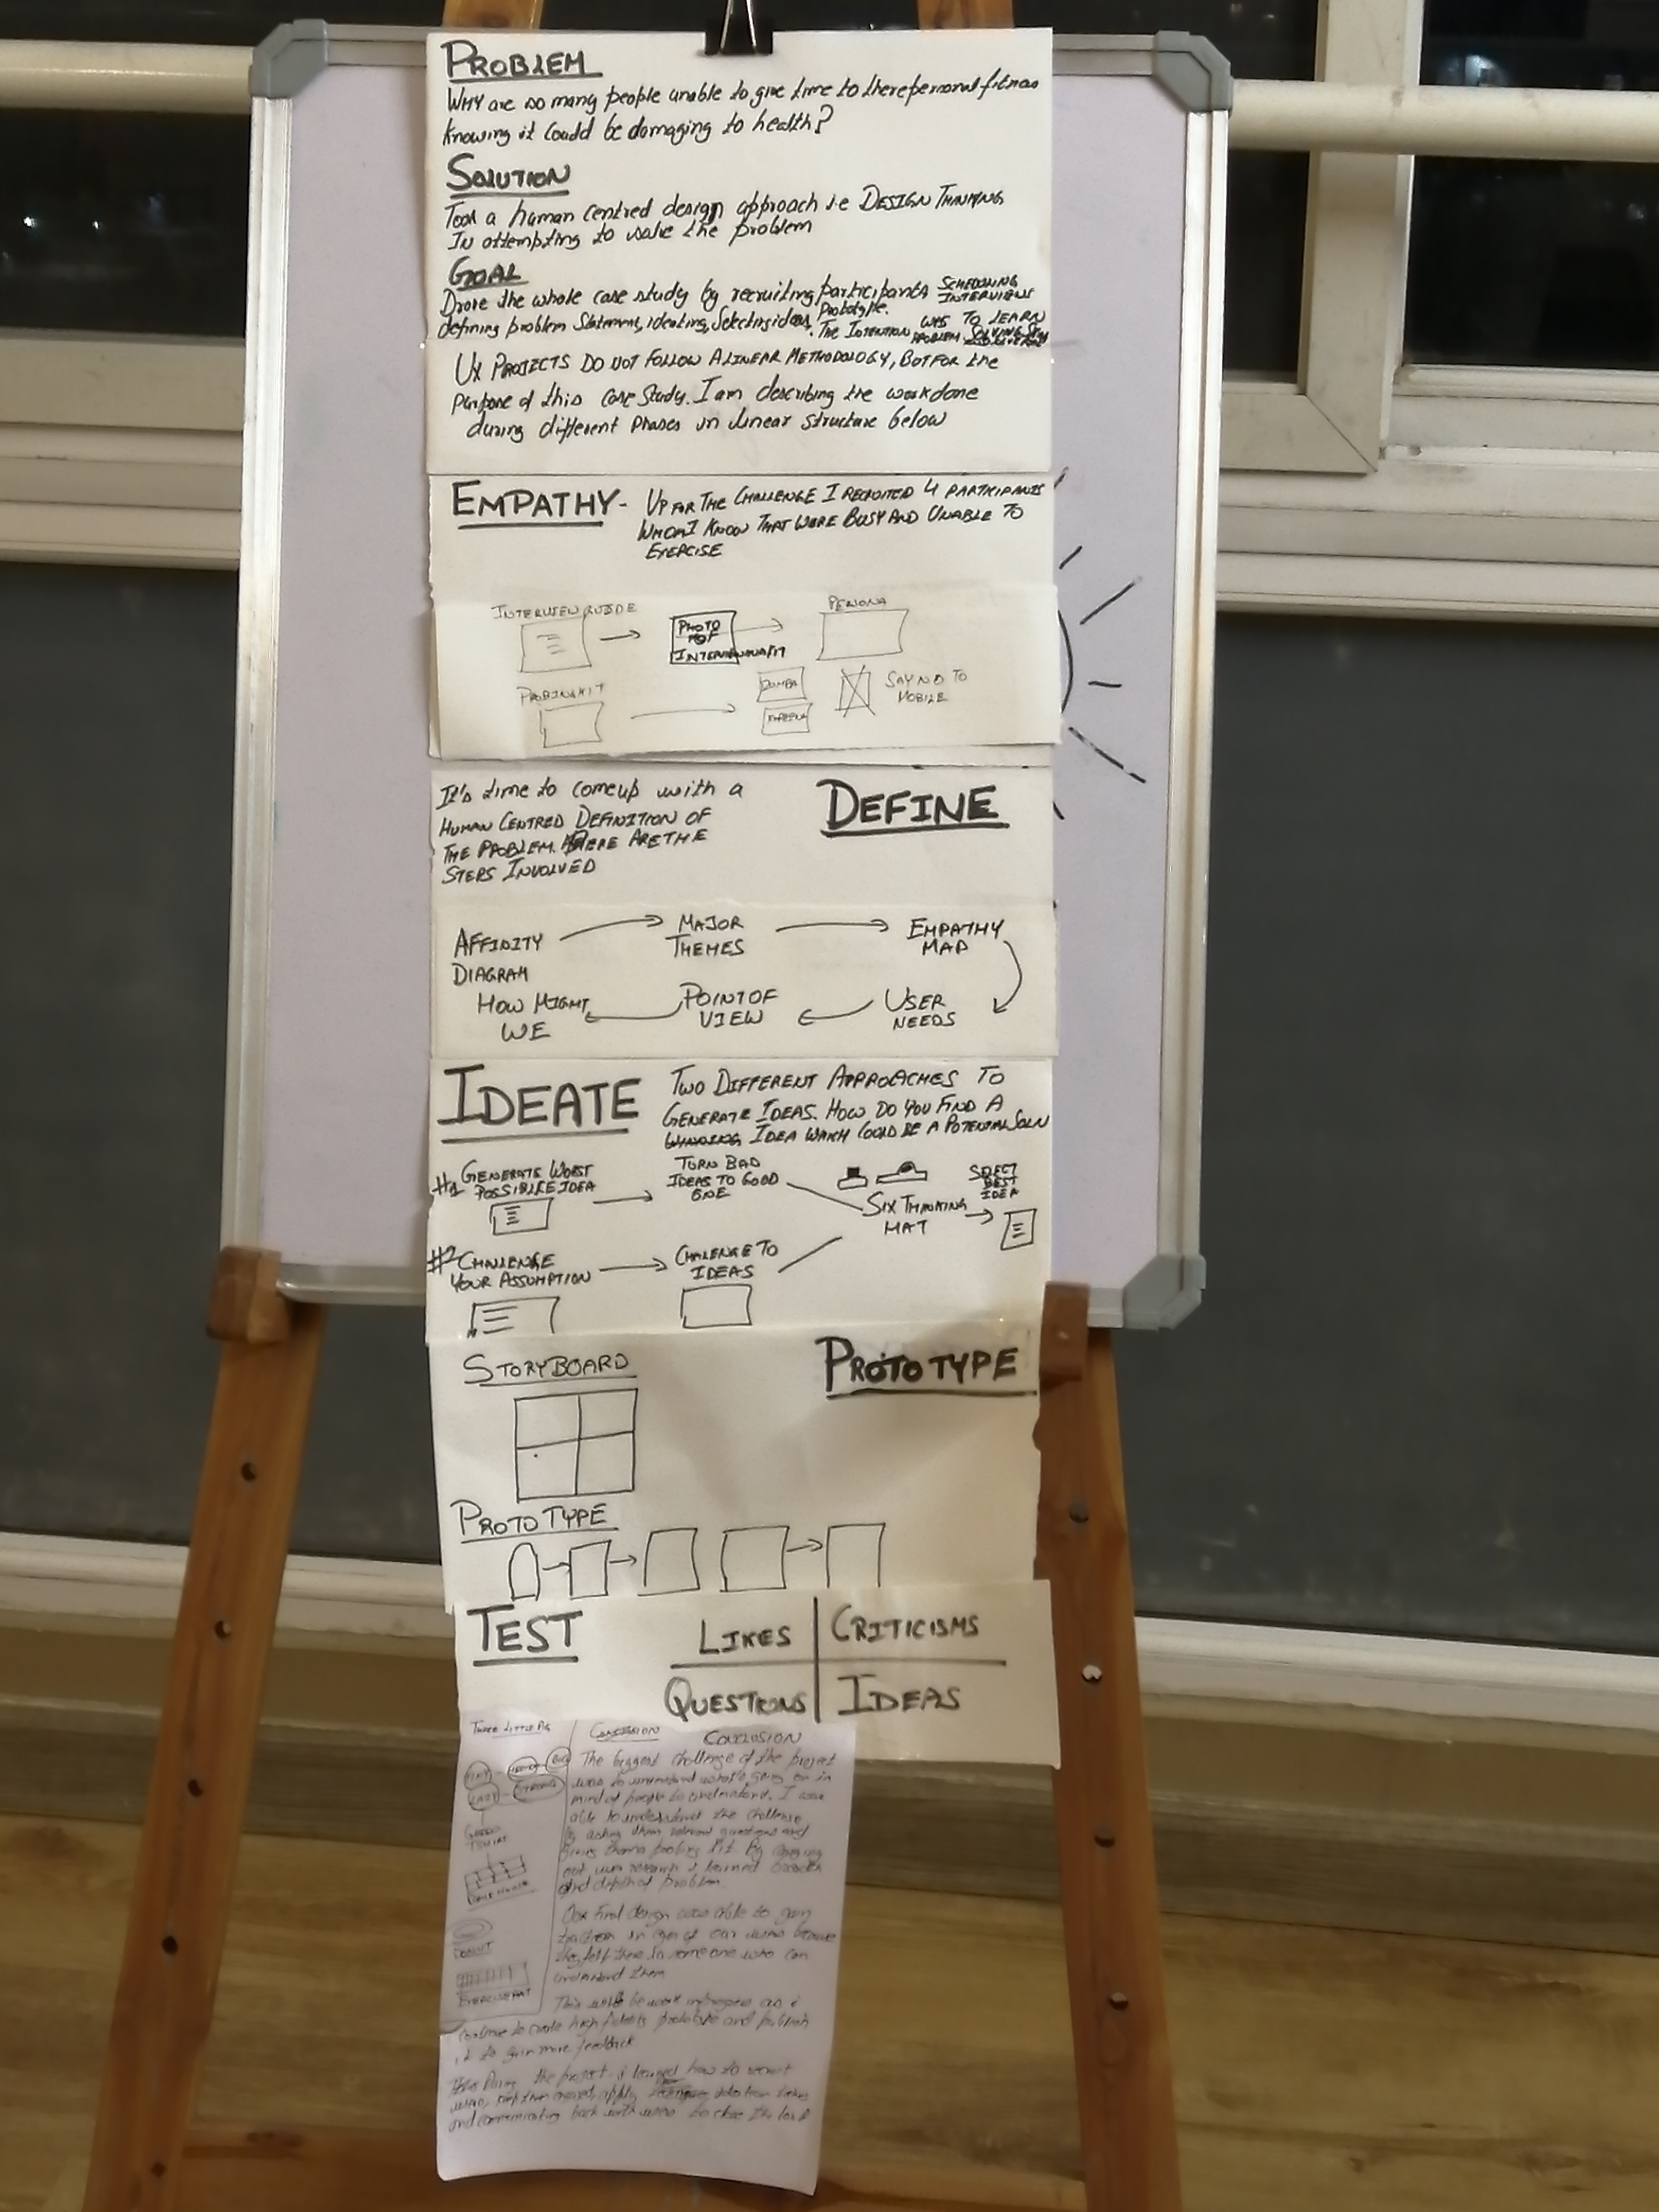 PROBLEM
WHY are so many people unable to give time to there personal fitness
knowing it could be damaging to health?
SOLUTION
Took a human centred design approach i.e DESIGN THINKING
In attempting to solve the problem
GOAL
Drove the whole case study by recruiting participants SCHEDULING INTERVIEWS
defining problem Statement, ideating, Selecting ideas, Prototype. THE INTENTION WAS TO LEARN
PROBLEM SOLVING
UX PROJECTS DO NOT FOLLOW A LINEAR METHODOLOGY, BUT FOR the
purpose of this Case Study. I am describing the work done
during different Phases in linear structure below
EMPATHY - UP FOR THE CHALLENGE I RECRUITED 4 PARTICIPANTS
WHOM I KNOW THAT WERE BUSY AND UNABLE TO
EXERCISE
INTERVIEW GUIDE
PHOTO
OF
PERSONA
PROBING KIT
ZUMBA
SAY NO TO
MOBILE
It's time to come up with a
HUMAN CENTRED DEFINITION OF
THE PROBLEM. HERE ARE THE
STEPS INVOLVED
DEFINE
AFFINITY
DIAGRAM
MAJOR
THEMES
EMPATHY
MAP
HOW MIGHT
WE
POINT OF
VIEW
USER
NEEDS
IDEATE
TWO DIFFERENT APPROACHES TO
GENERATE IDEAS. HOW DO YOU FIND A
WINNING IDEA WHICH COULD BE A POTENTIAL SOLN
#1 GENERATE WORST
POSSIBLE IDEA
TURN BAD
IDEAS TO GOOD
ONE
SIX THINKING
HAT
SELECT
BEST
IDEA
#2 CHALLENGE
YOUR ASSUMPTION
CHALENGE TO
IDEAS
STORYBOARD
PROTOTYPE
PROTOTYPE
TEST
LIKES
CRITICISMS
QUESTIONS
IDEAS
THREE LITTLE PIG
CONCLUSION
The biggest challenge of the project
was to understand what's going on in
mind of people to understand. I was
able to understand the challenge
by asking them relevant questions and
giving them a probing kit. By carrying
out user research I learned breadth
and depth of problem
LAZY
STRONG
DONUT
EXERCISE MAT
Our Final design was able to gain
traction in eyes of our users because
they felt there is someone who can
understand them
This will be work in progress as i
continue to create high fidelity prototype and publish
it to gain more feedback
the project i learned how to recruit
and communicating back with users to close the loop